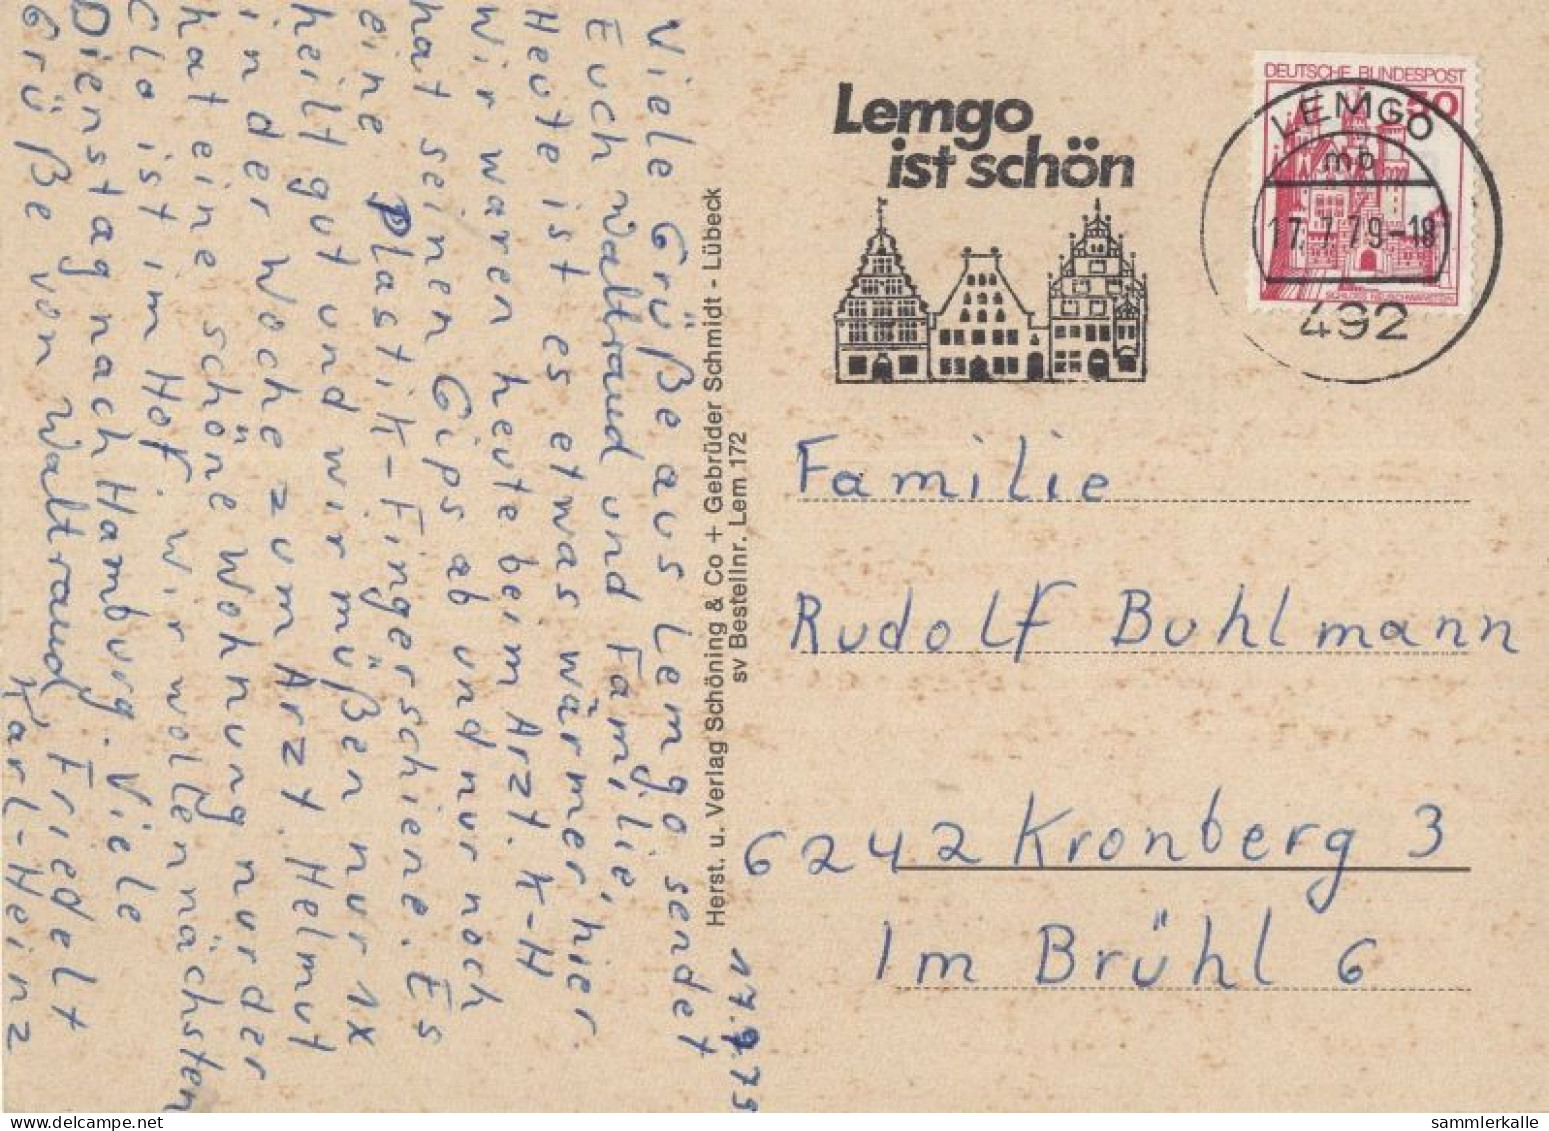 17.7.79
Viele Grüße aus Lemgo sendet
Euch Waltraud und Familie,
Heute ist es etwas wärmer hier.
Wir waren heute beim Arzt. K-H
hat seinen Gips ab und nur noch
eine Plastik-Fingerschiene. Es
heilt gut und wir müßen nur 1x
in der Woche zum Arzt. Helmut
hat eine schöne Wohnung nur der
Clo ist im Hof. Wir wollen nächsten
Dienstag nach Hamburg. Viele
Grüße von Waltraud, Friedelt
Karl-Heinz
Herst. u. Verlag Schöning & Co + Gebrüder Schmidt - Lübeck
sv Bestellnr. Lem 172
Lemgo
ist schön
DEUTSCHE BUNDESPOST
50
LEMGO
mb
17.7.79-18
492
Familie
Rudolf Buhlmann
6242 Kronberg 3
Im Brühl 6
sammlerkalle